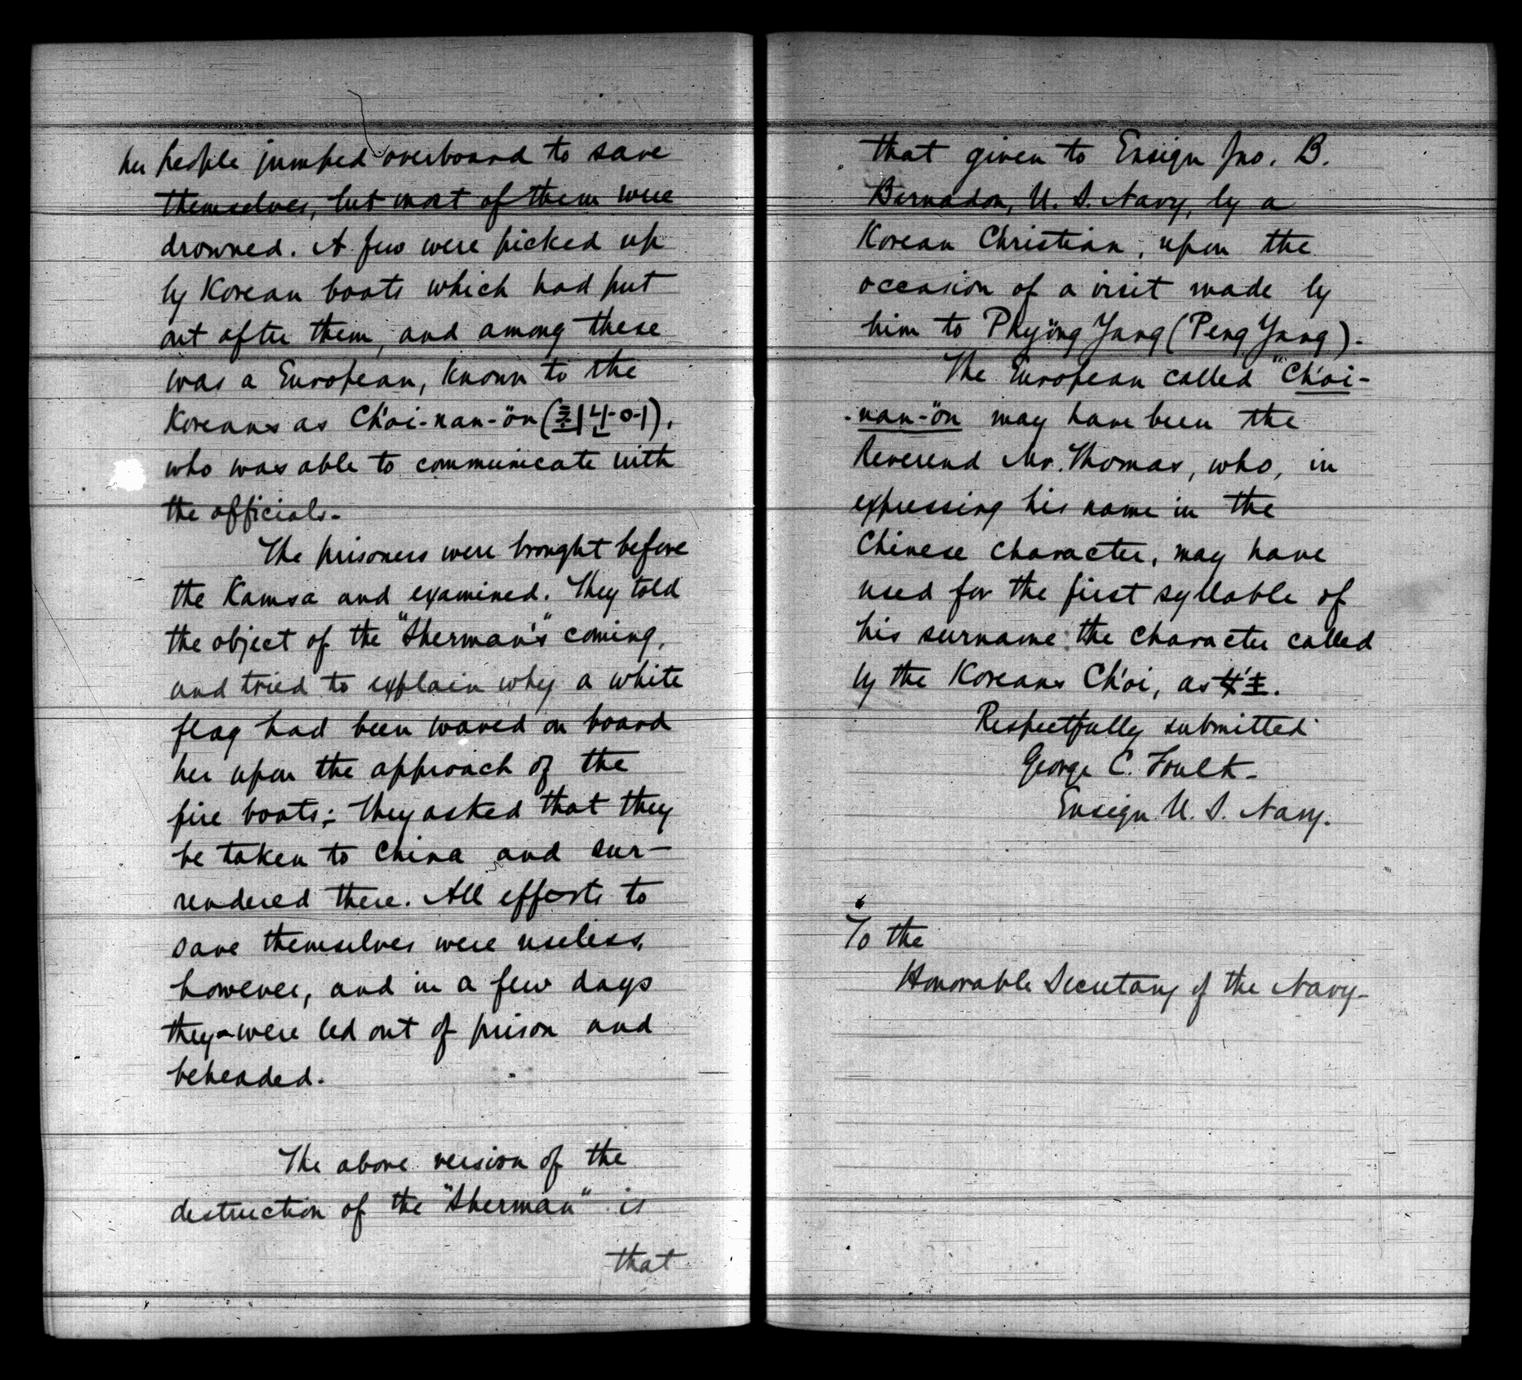 her people jumped overboard to save
themselves, but most of them were
drowned. A few were picked up
by Korean boats which had put
out after them, and among these
was a European, known to the
Koreans as Ch'oi-nan-ön (최난어),
who was able to communicate with
the officials.
The prisoners were brought before
the Kamsa and examined. They told
the object of the "Sherman's" coming,
and tried to explain why a white
flag had been waved on board
her upon the approach of the
fire boats; they asked that they
be taken to China and sur-
rendered there. All efforts to
save themselves were useless,
however, and in a few days
they were led out of prison and
beheaded.
The above version of the
destruction of the "Sherman" is
that
that given to Ensign Jno. B.
Bernadon, U. S. Navy, by a
Korean Christian, upon the
occasion of a visit made by
him to Phyöng Yang (Peng Yang).
The European called "Ch'oi-
nan-ön may have been the
Reverend Mr. Thomas, who, in
expressing his name in the
Chinese character, may have
used for the first syllable of
his surname the character called
by the Koreans Ch'oi, as
Respectfully submitted
George C. Foulk
Ensign U. S. Navy.
To the
Honorable Secretary of the Navy